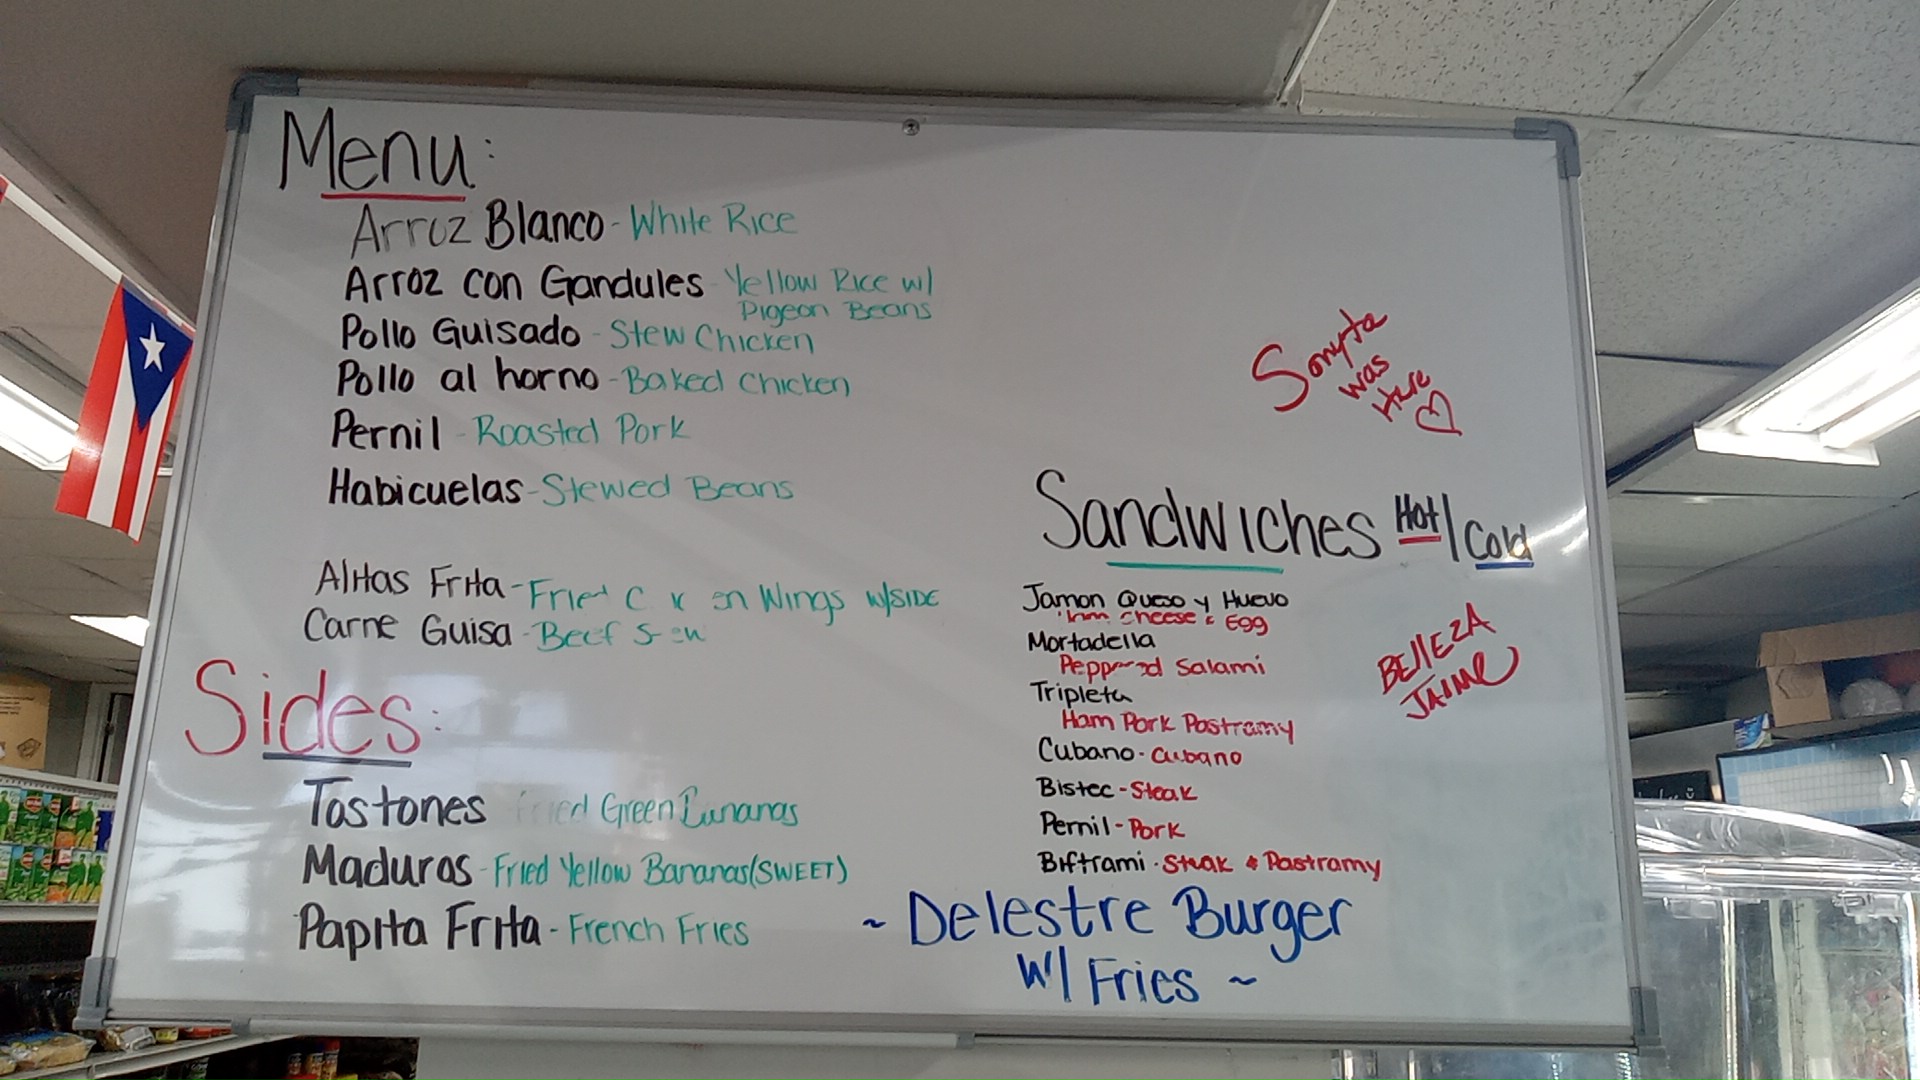 Menu:
Arroz Blanco - White Rice
Arroz con Gandules - Yellow Rice w/
Pigeon Beans
Pollo Guisado - Stew Chicken
Pollo al horno - Baked Chicken
Pernil - Roasted Pork
Habicuelas - Stewed Beans
Alitas Frita - Wings w/SIDE
Carne Guisa - Beef
Sides:
Tostones Green Bananas
Maduros - Fried Yellow Bananas (SWEET)
Papita Frita - French Fries
Sonyta
was
Here
Sandwiches Hot/Cold
Jamon Queso y Huevo
cheese & Egg
Mortadella
Salami
Tripleta
Ham Pork Pastramy
Cubano - Cubano
Bistec - Steak
Pernil - Pork
Biftrami - Steak & Pastramy
BEllEzA
JAIME
~ Delestre Burger
w/ Fries ~